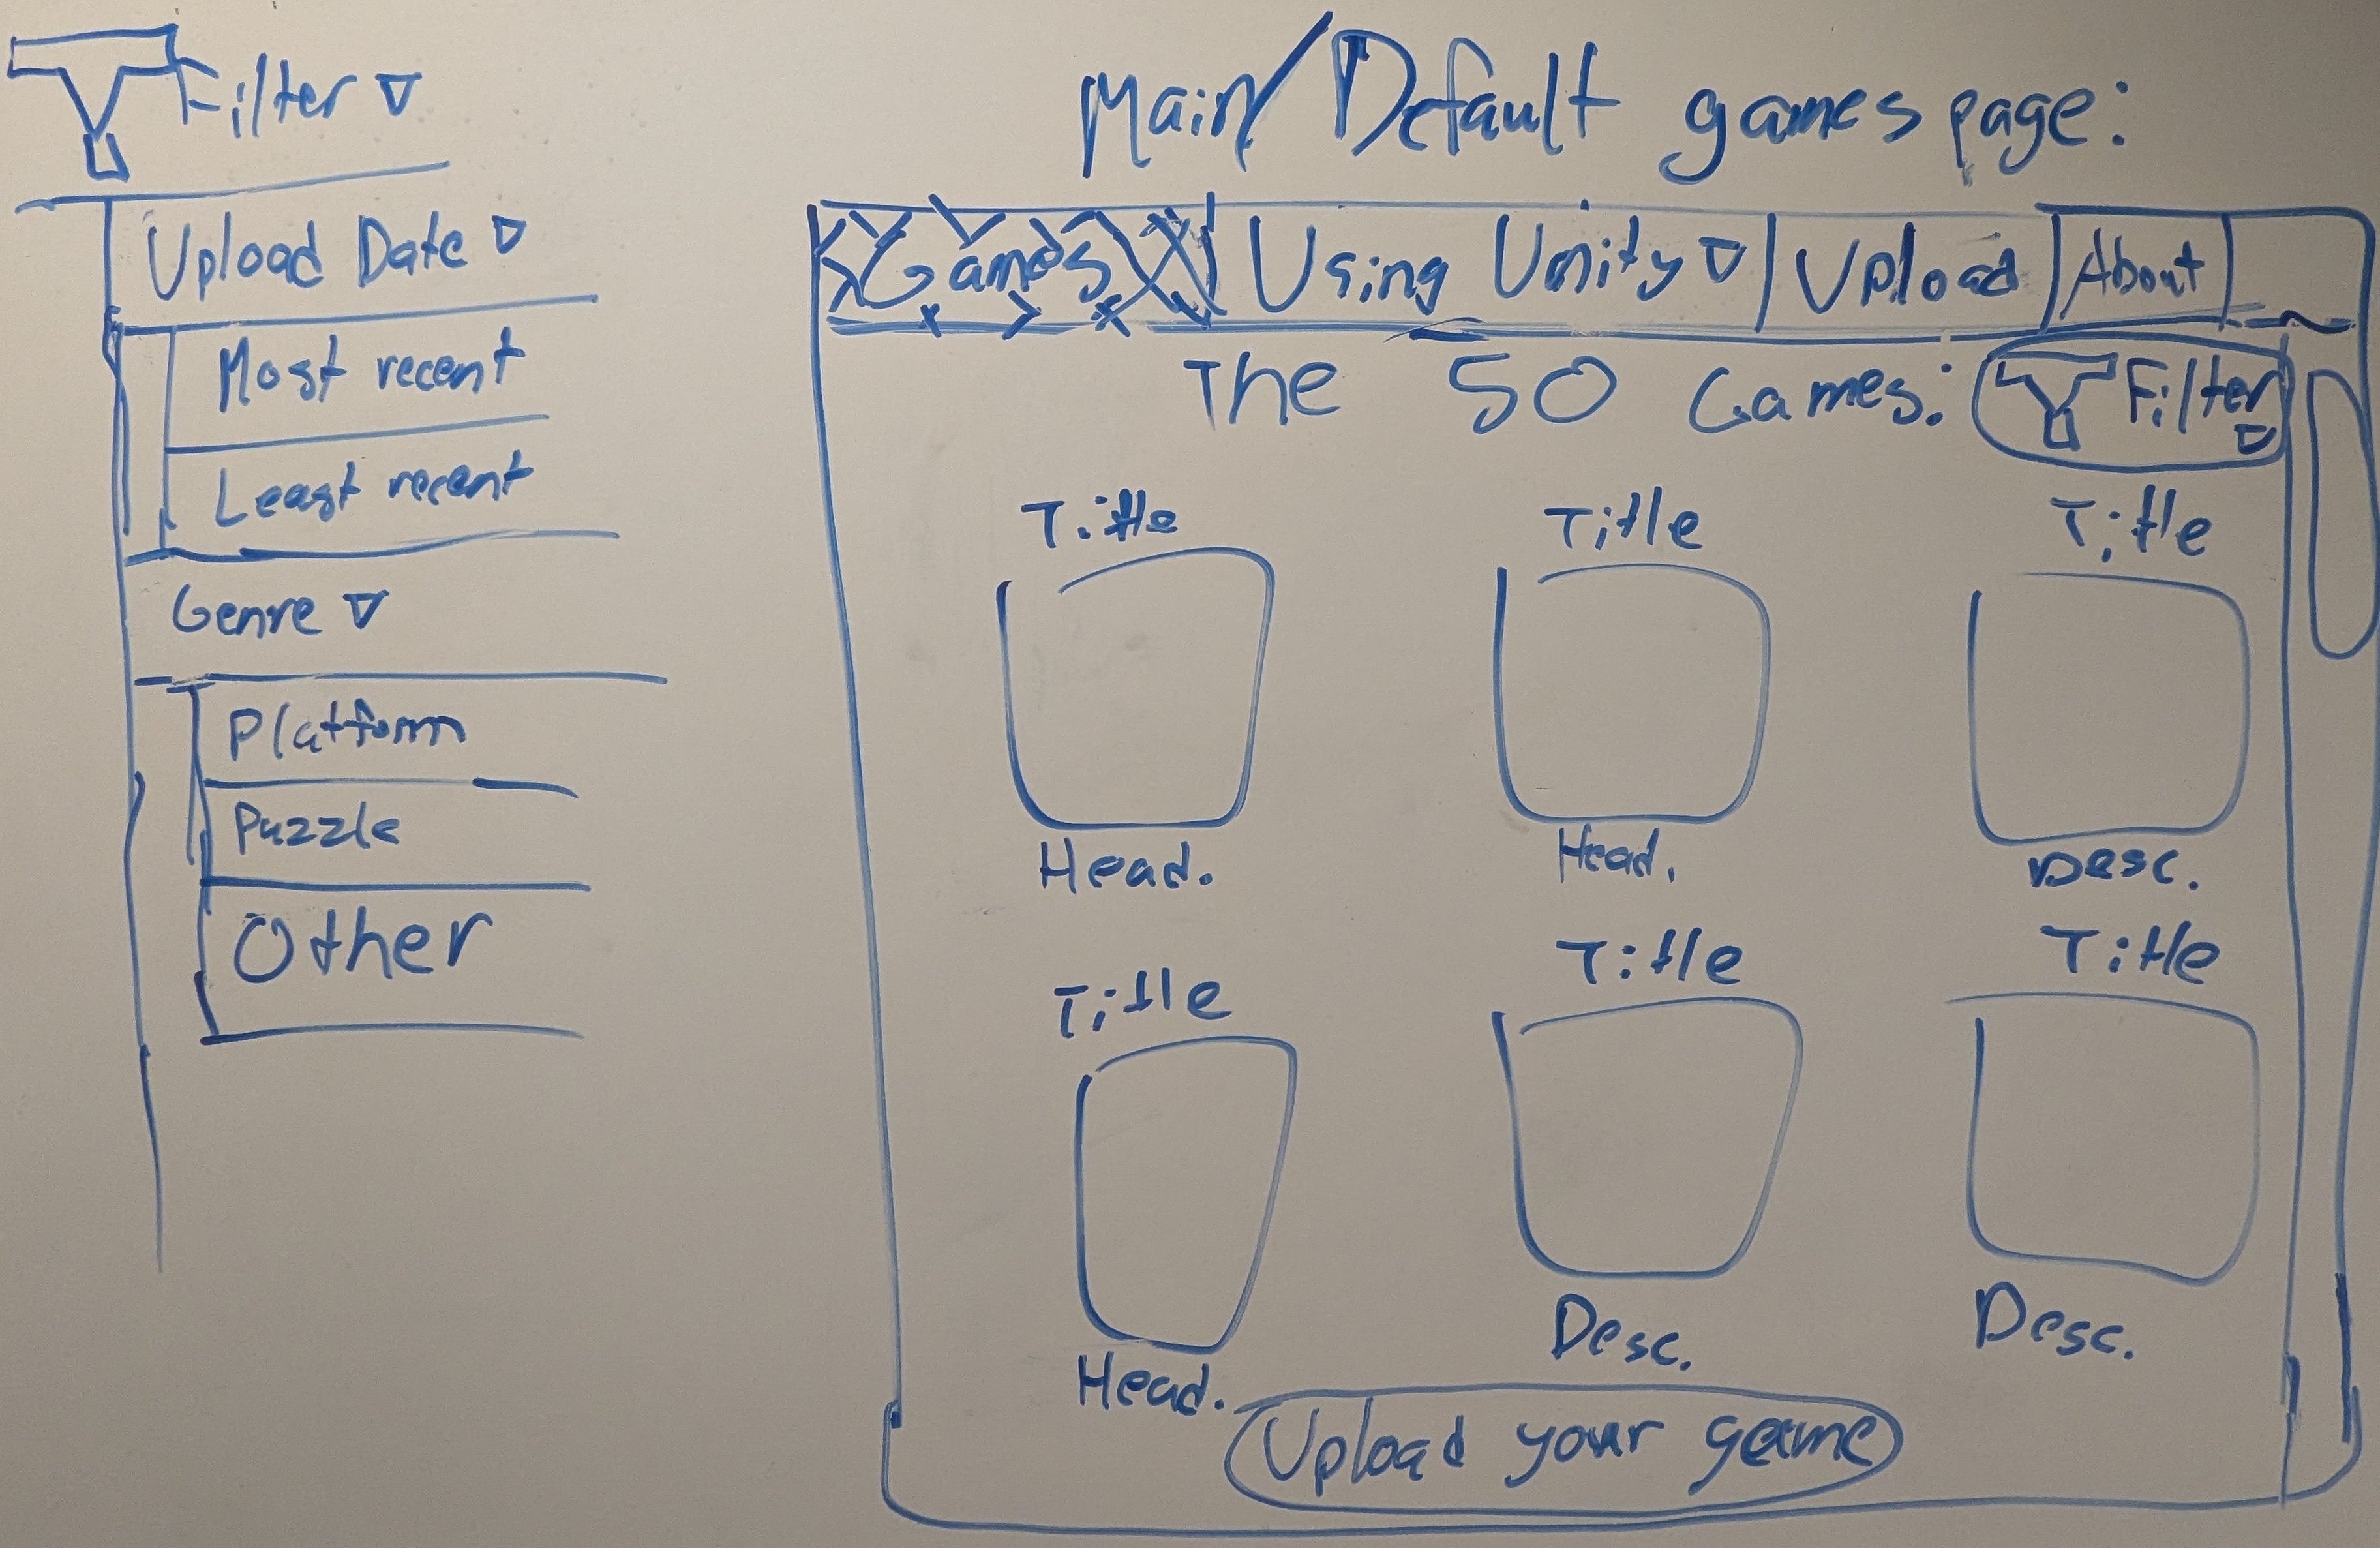 Filter ▽
Upload Date ▽
Most recent
Least recent
Genre ▽
Platform
Puzzle
Other
Main/Default games page:
Games Using Unity ▽ Upload About
The 50 Games: Filter ▽
Title Title Title
Head. Head. Desc.
Title Title Title
Head. Desc. Desc.
Upload your game